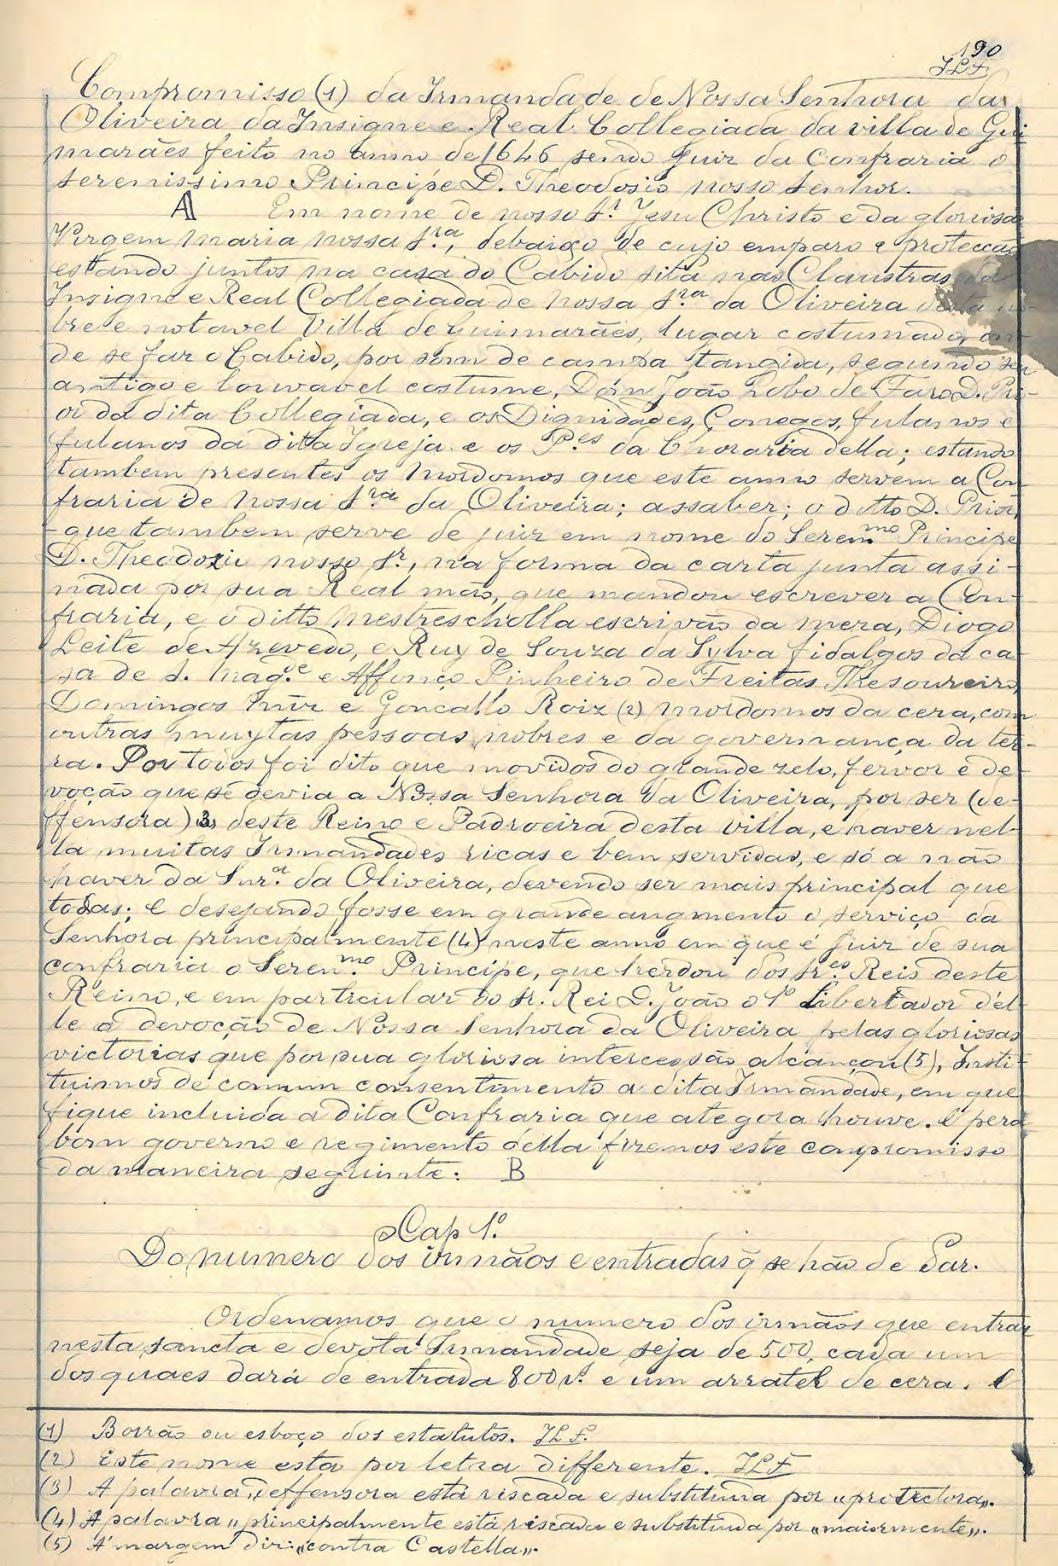 190
JLF
Compromisso (1) da Irmandade de Nossa Senhora da
Oliveira da Insigne e Real Collegiada da villa de Gui
marães feito no anno de 1646 sendo Juiz da Confraria o
serenissimo Principe D. Theodosio nosso senhor.
A Em nome de nosso Sr. Jesu Christo e da gloriosa
Virgem Maria nossa Sra, debaixo de cujo emparo e protecção
estando juntos na casa do Cabido sita nas Claustras da
Insigne e Real Collegiada de nossa Sra da Oliveira desta no
bre e notavel Villa de Guimarães, lugar costumado, on-
de se faz o Cabido, por som de campa tangida, segundo seu
antigo e louvavel costume, Dom João Lobo de Faro D. Pri-
or da dita Collegiada, e os Dignidades, Conegos, fulanos e
fulanos da dita Igreja e os Pes da Choraria della; estando
tambem presentes os mordomos que este anno servem a Con
fraria de nossa Sra da Oliveira; a ssaber; o ditto D. Prior,
que tambem serve de juiz em nome do Seren.mo Principe
D. Theodozio nosso Sr., na forma da carta junta assi-
nada por sua Real mão, que mandou escrever a Con-
fraria, e o ditto Mestrescholla escrivão da mera, Diogo
Leite de Azevedo, e Ruy de Souza da Sylva fidalgos da ca-
sa de S. Mag.de e Affonço Pinheiro de Freitas Thesoureiro,
Domingos Miz e Goncallo Roiz (2) mordomos da cera, com
outras muytas pessoas nobres e da governança da ter-
ra. Por todos foi dito que movidos do grande zelo, fervor e de-
voção que se devia a Nossa Senhora da Oliveira, por ser (de-
ffensora) 3, deste Reino e Padroeira desta villa, e haver nel-
la muitas Irmandades ricas e bem servidas, e só a não
haver da Snr.a da Oliveira, devendo ser mais principal que
todas; e desejando fosse em grande augmento o serviço da
Senhora principalmente (4) neste anno em que é Juiz de sua
confraria o Seren.mo Principe, que herdou dos Sr.es Reis deste
Reino, e em particular do Sr. Rei D. João o 1º Libertador del-
le a devoção de Nossa Senhora da Oliveira pelas gloriosas
victorias que por sua gloriosa intercessão alcançou (5), Insti-
tuimos de comum consentimento a dita Irmandade, em que
fique incluida a dita Confraria que ategora houve. E pera
bom governo e regimento della fizemos este compromisso
da maneira seguinte: B
Cap 1.º
Do numero dos irmãos e entradas q̃ se hão de dar.
Ordenamos que o numero dos irmãos que entrar
nesta sancta e devota Irmandade seja de 500, cada um
dos quaes dará de entrada 800 rs. e um arratel de cera. E
(1) Borrão ou esboço dos estatutos. JLF.
(2) Este nome está por letra differente. JLF
(3) A palavra „deffensora está riscada e substituida por „protectora„.
(4) A palavra „principalmente está riscada e substituida por „maiormente„.
(5) Á margem diz: „contra Castella„.